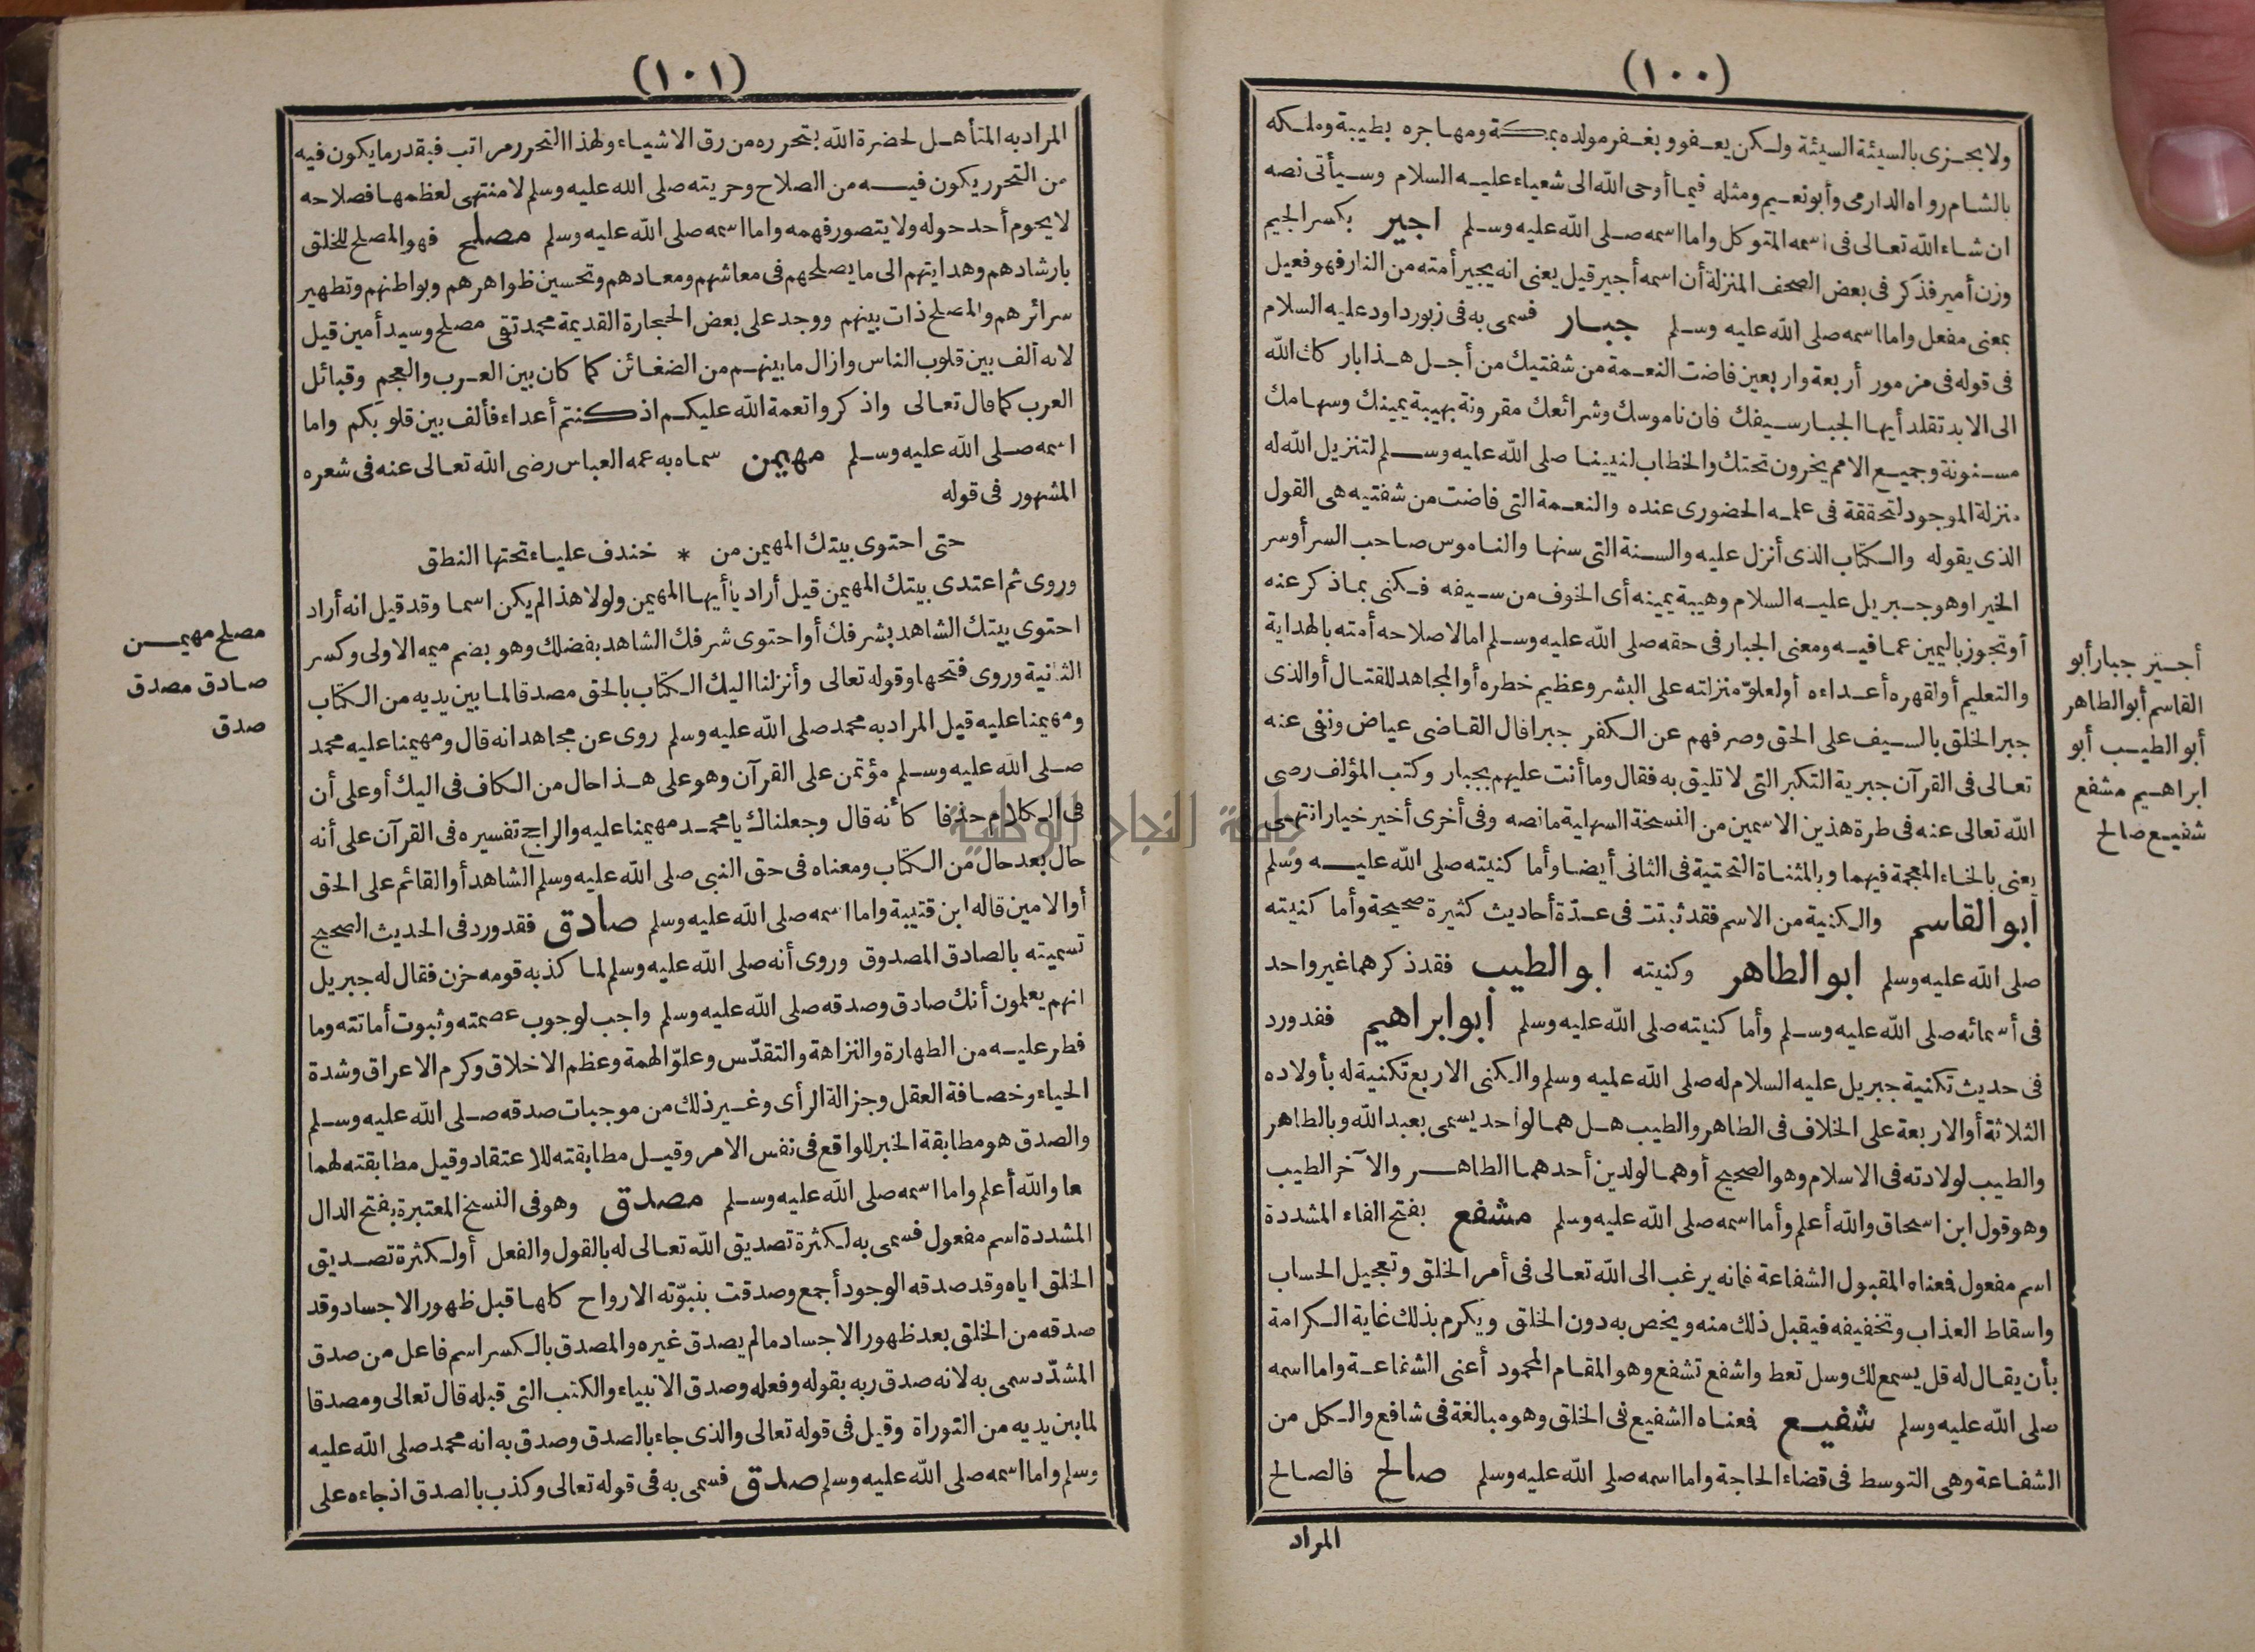 (١٠٠)
ولا يجـزى بالسيئة السيئة ولـكن يعـفو و يغـفر مولده بمـكة ومهـاجره بطيبة وملـكه
بالشـام رواه الدارمى وأبو نعـيم ومثله فيمـا أوحى الله الى شعياء عليـه السلام وسـيأتى نصه
ان شـاء الله تعـالى فى اسمه المتوكل واما اسمه صـلى الله عليه وسـلم اجير بكسر الجيم
وزن أمير فذكر فى بعض الصحف المنزلة أن اسمه أجير قيل يعنى انه يجير أمته من النار فهو فعيل
بمعنى مفعل واما اسمه صلى الله عليه وسـلم جبـار فسمى به فى زبور داود عليه السلام
فى قوله فى مزمور أربعة وار بعين فاضت النعـمة من شفتيك من أجـل هـذا بار كك الله
الى الابد تقلد أيهـا الجبار سـيفك فان ناموسك وشرائعك مقرونة بهيبة يمينك وسهـامك
مسـنونة وجميـع الامم يخرون تحتك والخطاب لنبينـا صلى الله عليه وسـلم لتنزيل الله له
منزلة الموجود لتحققة فى علمـه الحضورى عنده والنعـمة التى فاضت من شفتيه هى القول
الذى يقوله والـكتاب الذى أنزل عليه والسـنة التى سنهـا والنـاموس صـاحب السر أو سر
الخير او هو جـبريل عليـه السلام وهيبة يمينه أى الخوف من سـيفه فـكنى بمـا ذكر عنه
أو تجوز باليمين عمـا فيـه ومعنى الجبار فى حقه صلى الله عليه وسـلم اما لاصلاحه أمته بالهداية
والتعليم أو لقهره أعـداءه أو لعلوّ منزلته على البشر وعظيم خطره أو المجاهد للقتـال أو الذى
جبر الخلق بالسـيف على الحق وصرفهم عن الـكفر جبرا قال القـاضى عياض ونفى عنه
تعـالى فى القرآن جبرية التكبر التى لا تليق به فقال وما أنت عليهم بجبار وكتب المؤلف رضى
الله تعالى عنه فى طرة هذين الاسمين من النسخة السهلية ما نصه وفى أخرى أخير خيار انتهى
يعنى بالخـاء المعجمة فيهما و بالمثنـاة التحتية فى الثانى أيضـا وأما كنيته صلى الله عليـه وسلم
أبو القاسم والـكنية من الاسم فقد ثبتت فى عـدّة أحاديث كثيرة صحيحة وأما كنيته
صلى الله عليه وسلم ابو الطاهر وكنيته ابو الطيب فقد ذكرهما غير واحد
فى أسمائه صلى الله عليه وسـلم وأما كنيته صلى الله عليه وسلم ابو ابراهيم فقد ورد
فى حديث تكنية جبريل عليه السلام له صلى الله عليه وسلم والـكنى الاربع تكنية له بأولاده
الثلاثة أو الاربعة على الخلاف فى الطاهر والطيب هـل همـا لواحد يسمى بعبد الله و بالطاهر
والطيب لولادته فى الاسلام وهو الصحيح أو همـا لولدين أحدهمـا الطاهـر والآخر الطيب
وهو قول ابن اسحاق والله أعلم وأما اسمه صلى الله عليه وسلم مشفع بفتح الفاء المشددة
اسم مفعول فمعناه المقبول الشفاعة فانه يرغب الى الله تعـالى فى أمر الخلق وتعجيل الحساب
واسقاط العذاب وتخفيفه فيقبل ذلك منه و يخص به دون الخلق و يكرم بذلك غاية الـكرامة
بأن يقـال له قل يسمع لك وسل تعط واشفع تشفع وهو المقـام المحمود أعنى الشفاعـة واما اسمه
صلى الله عليه وسلم شفيـع فمعنـاه الشفيع فى الخلق وهو مبالغة فى شافع والـكل من
الشفـاعة وهى التوسط فى قضاء الحاجة واما اسمه صلى الله عليه وسلم صالح فالصـالح
المراد
أجـير جبار أبو
القاسم أبو الطاهر
أبو الطيـب أبو
ابراهـيم مشفع
شفيـع صالح
(١٠١)
المراد به المتأهـل لحضرة الله بتحرره من رق الاشيـاء ولهذا التحرر مراتب فبقدر ما يكون فيه
من التحرر يكون فيـه من الصلاح وحريته صلى الله عليه وسلم لا منتهى لعظمهـا فصلاحه
لا يحوم أحد حوله ولا يتصور فهمه واما اسمه صلى الله عليه وسلم مصلح فهو المصلح للخلق
بارشادهم وهدايتهم الى ما يصلحهم فى معاشهم ومعـادهم وتحسين ظواهرهم وبواطنهم وتطهير
سرائرهم والمصلح ذات بينهم ووجد على بعض الحجارة القديمة محمد تقى مصلح وسيد أمين قيل
لانه ألف بين قلوب الناس وازال ما بينهـم من الضغـائن كما كان بين العـرب والعجم وقبائل
العرب كما قال تعـالى واذكروا نعمة الله عليكـم اذ كـنتم أعداء فألف بين قلو بكم واما
اسمه صـلى الله عليه وسـلم مهيمن سمـاه به عمه العباس رضى الله تعـالى عنه فى شعره
المشهور فى قوله
حتى احتوى بيتك المهيمن من * خندف علياء تحتها النطق
وروى ثم اعتدى بيتك المهيمن قيل أراد يا أيهـا المهيمن ولولا هذا لم يكن اسمـا وقد قيل انه أراد
احتوى بيتك الشاهد بشرفك أو احتوى شرفك الشاهد بفضلك وهو بضم ميمه الاولى وكسر
الثانية وروى فتحها وقوله تعالى وأنزلنا اليك الـكتاب بالحق مصدقا لمـا بين يديه من الـكتاب
ومهيمنا عليه قيل المراد به محمد صلى الله عليه وسلم روى عن مجاهد انه قال ومهيمنا عليه محمد
صـلى الله عليه وسـلم مؤتمن على القرآن وهو على هـذا حال من الـكاف فى اليك أو على أن
فى الـكلام حذفا كأنه قال وجعلناك يا محمـد مهيمنا عليه والراجح تفسيره فى القرآن على أنه
حال بعد حال من الـكتاب ومعناه فى حق النبى صلى الله عليه وسلم الشاهد أو القائم على الحق
أو الامين قاله ابن قتيبة واما اسمه صلى الله عليه وسلم صادق فقد ورد فى الحديث الصحيح
تسميته بالصادق المصدوق وروى أنه صلى الله عليه وسلم لمـا كذبه قومه حزن فقال له جبريل
انهم يعلمون أنك صادق وصدقه صلى الله عليه وسلم واجب لوجوب عصمته وثبوت أمانته وما
فطر عليـه من الطهارة والنزاهة والتقدّس وعلوّ الهمة وعظم الاخلاق وكرم الاعراق وشدة
الحياء وخصـافة العقل وجزالة الرأى وغـير ذلك من موجبات صدقه صـلى الله عليه وسـلم
والصدق هو مطابقة الخبر للواقع فى نفس الامر وقيـل مطابقته للاعتقاد وقيل مطابقته لهما
معا والله أعلم واما اسمه صلى الله عليه وسـلم مصدق وهو فى النسخ المعتبرة بفتح الدال
المشددة اسم مفعول فسمى به لـكثرة تصديق الله تعـالى له بالقول والفعل أو لـكثرة تصـديق
الخلق اياه وقد صدقه الوجود أجمع وصدقت بنبوّته الارواح كلهـا قبل ظهور الاجساد وقد
صدقه من الخلق بعد ظهور الاجساد ما لم يصدق غيره والمصدق بالـكسر اسم فاعل من صدق
المشدّد سمى به لانه صدق ربه بقوله وفعله وصدق الانبياء والكتب التى قبله قال تعالى ومصدقا
لما بين يديه من التوراة وقيل فى قوله تعالى والذى جاء بالصدق وصدق به انه محمد صلى الله عليه
وسلم واما اسمه صلى الله عليه وسلم صدق فسمى به فى قوله تعالى وكذب بالصدق اذ جاءه على
مصلح مهيمـن
صـادق مصدق
صدق
جامعة النجاح الوطنية